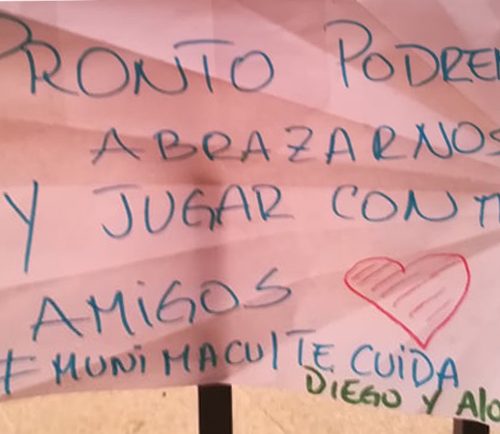 PRONTO PODRE
ABRAZARNOS
Y JUGAR CON
AMIGOS
#MUNIMACULTECUIDA
DIEGO Y